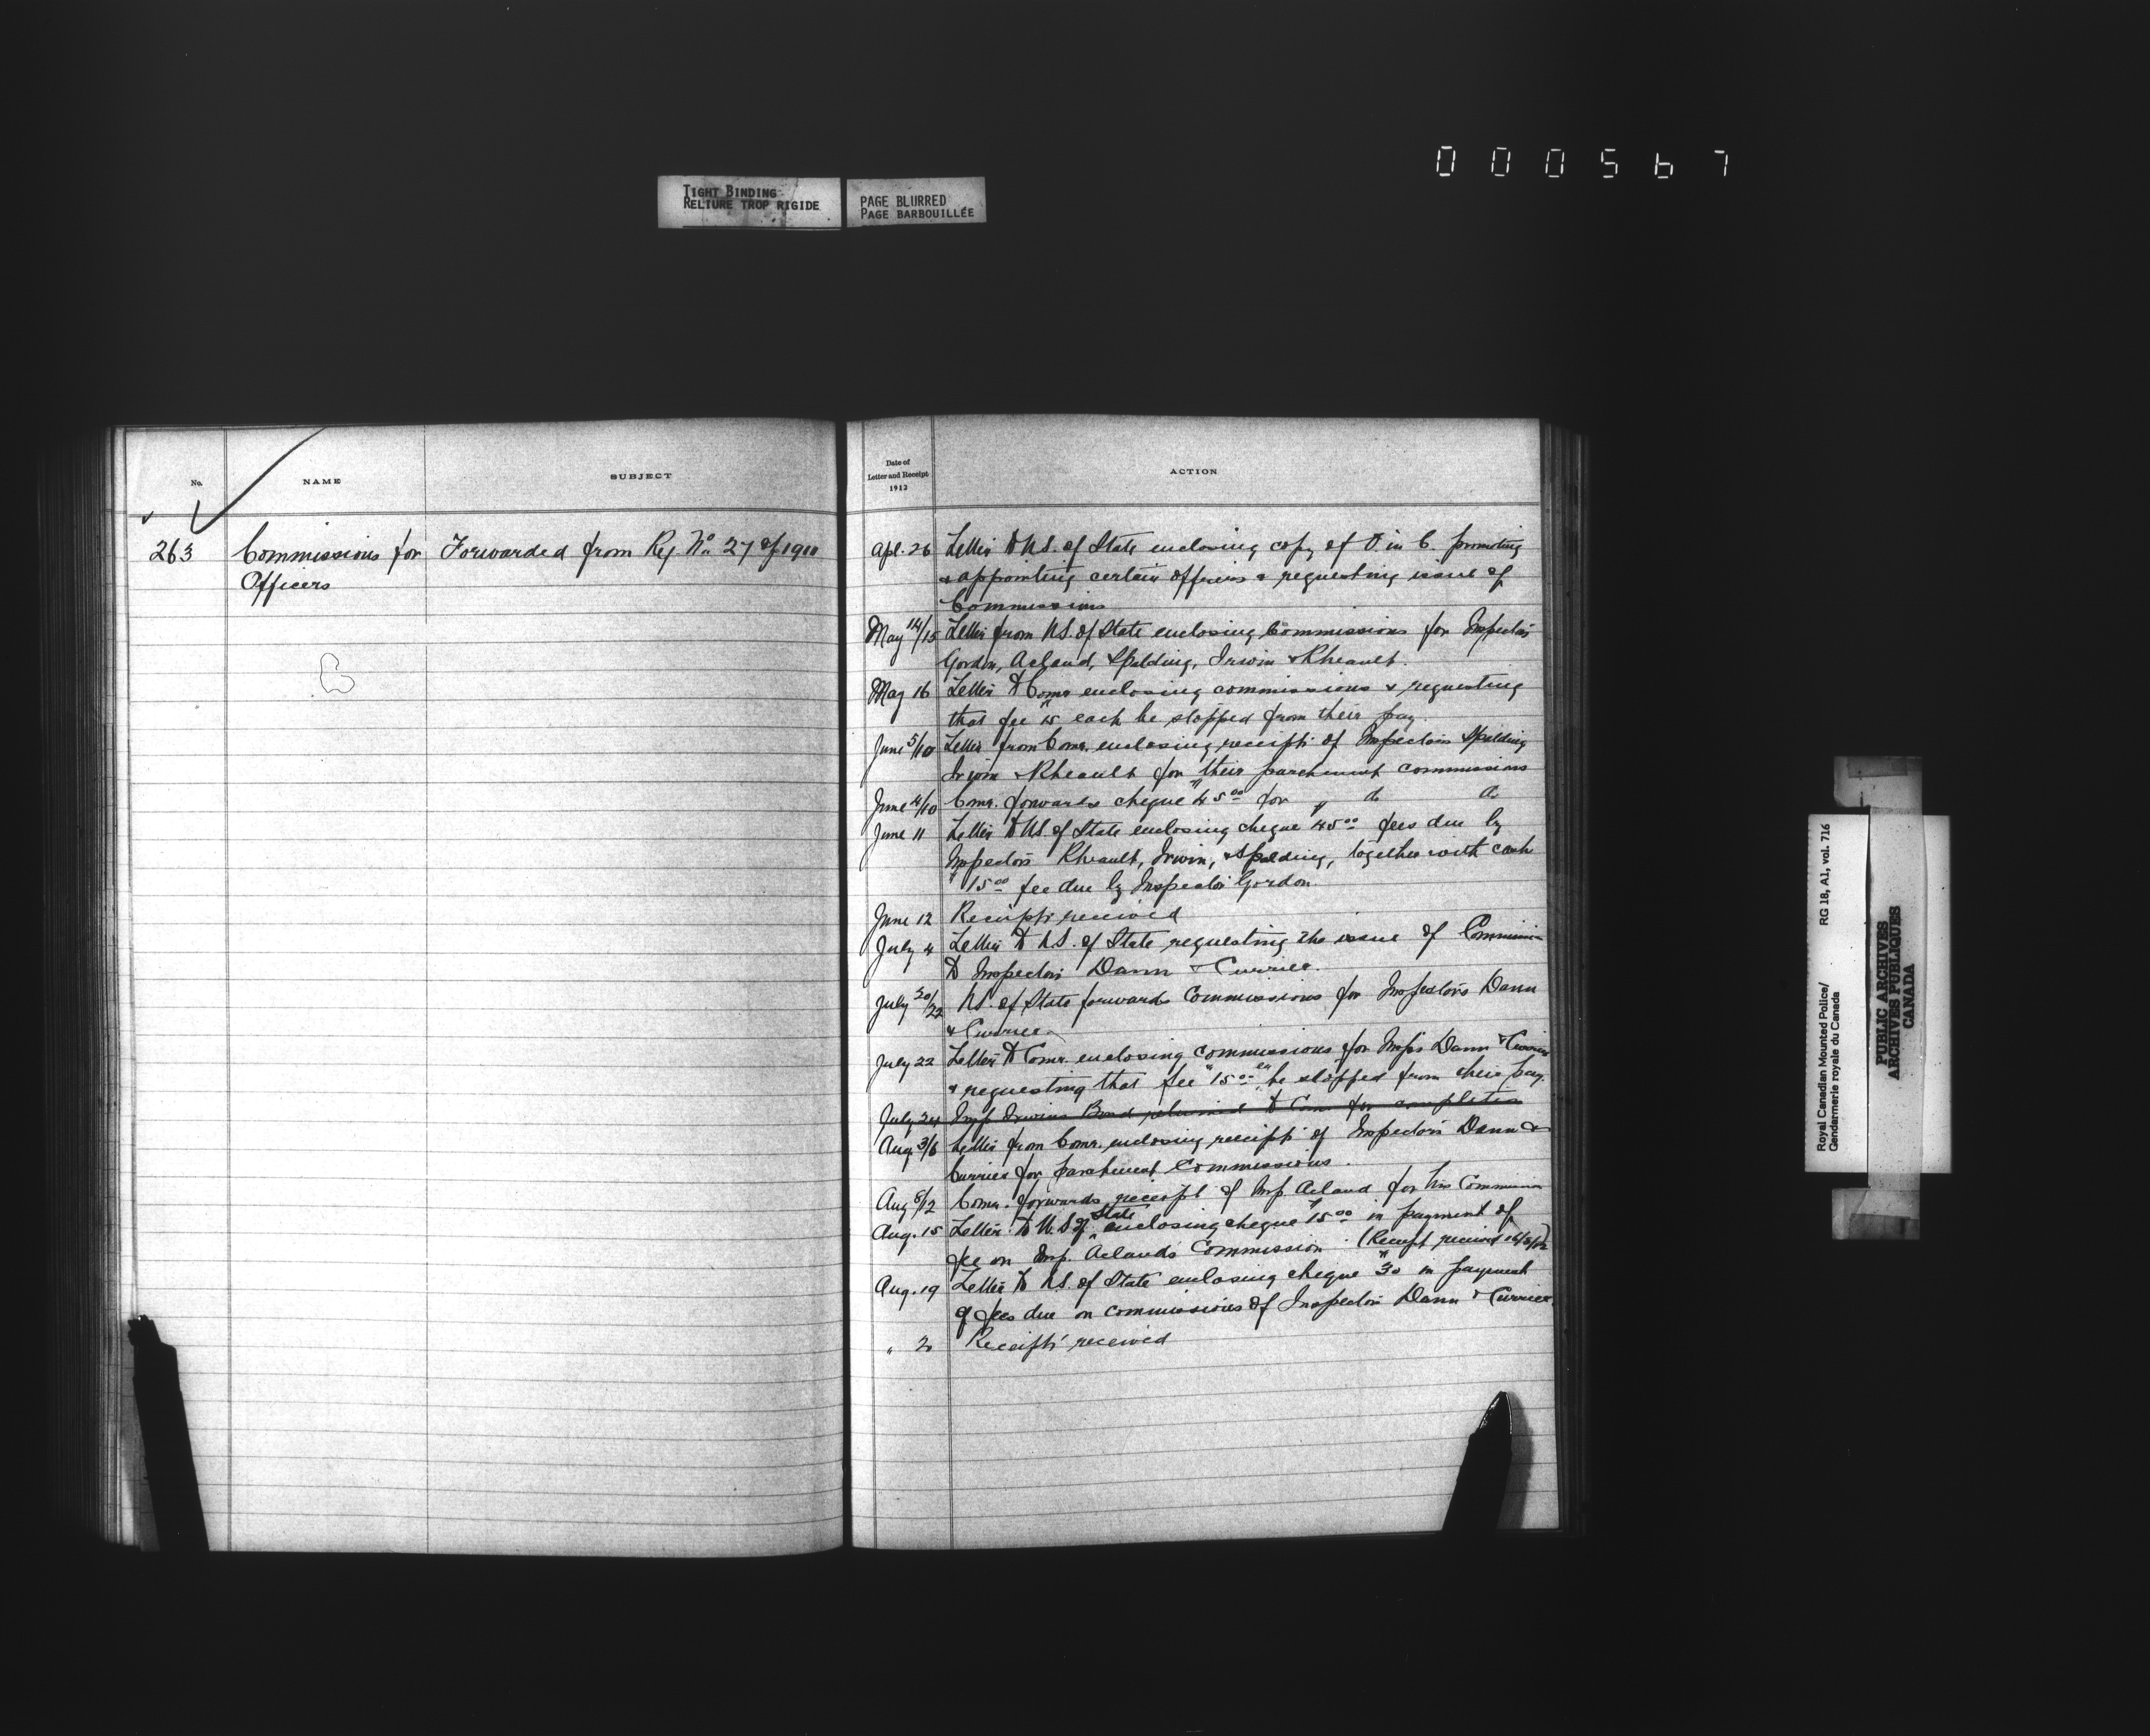 0 0 0 5 6 7
TIGHT BINDING
RELIURE TROP RIGIDE
PAGE BLURRED
PAGE BARBOUILLÉE
No.
NAME
SUBJECT
263
Commissions for
Officers
Forwarded from Reg No. 27 of 1911
Date of
Letter and Receipt
1912
ACTION
Apl. 26 Letter to U.S. of State enclosing copy of O. in C. promoting
& appointing certain officers & requesting issue of
Commissions
May 14/15 Letter from U.S. of State enclosing Commissions for Inspectors
Gordon, Acland, Spalding, Irwin & Rheault.
May 16 Letter to Comr enclosing commissions & requesting
that fee $15 each be stopped from their pay.
June 5/10 Letter from Comr. enclosing receipts of Inspectors Spalding
Irwin & Rheault for their parchment commissions
June 4/10 Comr. forwards cheque $45.00 for " do do
June 11 Letter to U.S. of State enclosing cheque $45.00 fees due by
Inspectors Rheault, Irwin, & Spalding, together with cash
$15.00 fee due by Inspector Gordon.
June 12 Receipts received
July 4 Letter to U.S. of State requesting the issue of Commission
to Inspectors Dann & Currier.
July 20/22 U.S. of State forwards Commissions for Inspectors Dann
& Currier
July 22 Letter to Comr. enclosing commissions for Insprs Dann & Currier
& requesting that fee $15.00 ea be stopped from their pay.
July 24 Insp Irwins Bond returned to Comr for completion
Aug 3/6 Letter from Comr. enclosing receipts of Inspectors Dann &
Currier for parchment Commissions.
Aug 8/12 Comr. forwards receipt of Insp. Acland for his Commission
Aug. 15 Letter to U.S. of State enclosing cheque $15.00 in payment of
fee on Insp. Acland's Commission (Receipt received 16/8/12)
Aug. 19 Letter to U.S. of State enclosing cheque $30 in payment
of fees due on commissions of Inspectors Dann & Currier.
" 20 Receipts received
Royal Canadian Mounted Police/
Gendarmerie royale du Canada
RG 18, A1, vol. 716
PUBLIC ARCHIVES
ARCHIVES PUBLIQUES
CANADA